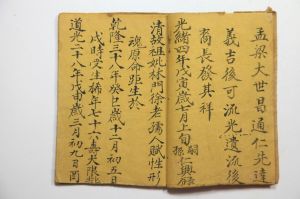 孟梁大世昌通仁先達
義吉後可流光遺流後
裔長發其祥
光緒四年戊寅歲七月上旬嗣孫仁興修
清故祖妣林門徐老孺人賦性形
魂原命距生於
乾隆三十八年癸巳歲十二月初五日
戌時受生稀年七十六壽夫限
道光二十八年戊申歲三月初九日